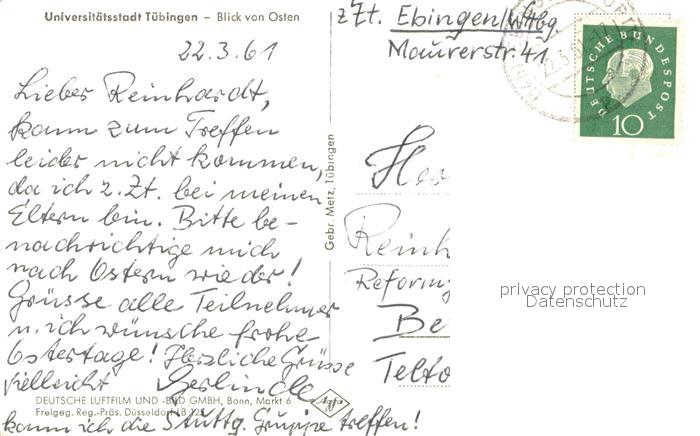 Universitätsstadt Tübingen – Blick von Osten
z.Zt. Ebingen/Wttbg.
Maurerstr. 41
22.3.61
Lieber Reinhardt,
kann zum Treffen
leider nicht kommen,
da ich z. Zt. bei meinen
Eltern bin. Bitte be-
nachrichtige mich
nach Ostern wieder!
Grüsse alle Teilnehmer
u. ich wünsche frohe
Ostertage! Herzliche Grüsse
Gerlinde
vielleicht
kann ich die Stuttg. Gruppe treffen!
DEUTSCHE LUFTFILM UND -BILD GMBH, Bonn, Markt 6
Freigeg. Reg.-Präs. Düsseldorf LB 125
Gebr. Metz, Tübingen
Agfa
Her
Reinh
Reform
Be
Telto
DEUTSCHE BUNDESPOST
10
22.3.61
privacy protection
Datenschutz